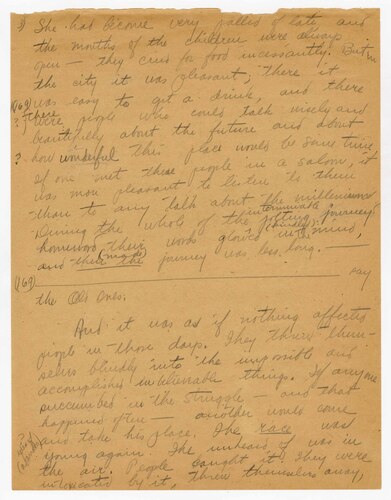 She had become very pallid of late, and
the mouths of the children were always
open — they cried for food incessantly. But in
the city it was pleasant; there it
was easy to get a drink, and there
(169) there
? were people who could talk wisely and
beautifully about the future and about
? how wonderful this place would be some time.
If one met these people in a saloon, it
was more pleasant to listen to them
than to any talk about the millennium.
During the whole of the jolting journey
homeward, their words glowed in the mind,
and made the journey was less long. —
(169) say
the Old Ones.
And it was as if nothing affected
people in those days. They threw them-
selves blindly into the impossible and
accomplished unbelievable things. If anyone
succumbed in the struggle — and that
happened often — another would come
and take his place. The race was
young again. The unheard of was in
the air. People caught it; they were
intoxicated by it, threw themselves away,